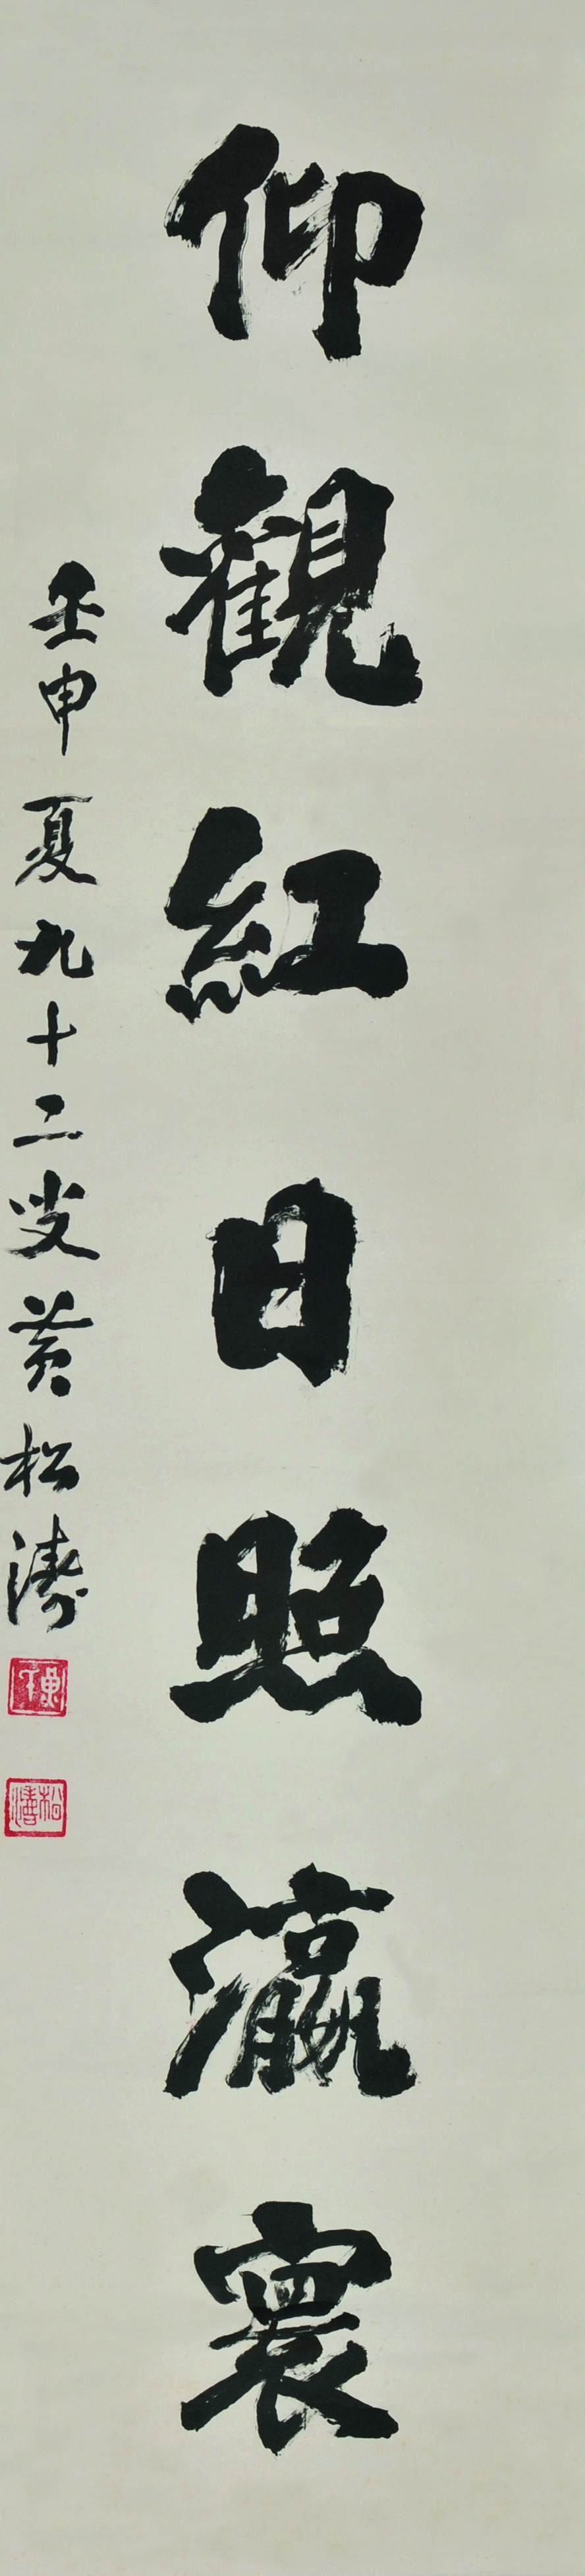 仰觀紅日照瀛寰
壬申夏九十二叟黄松濤
松濤